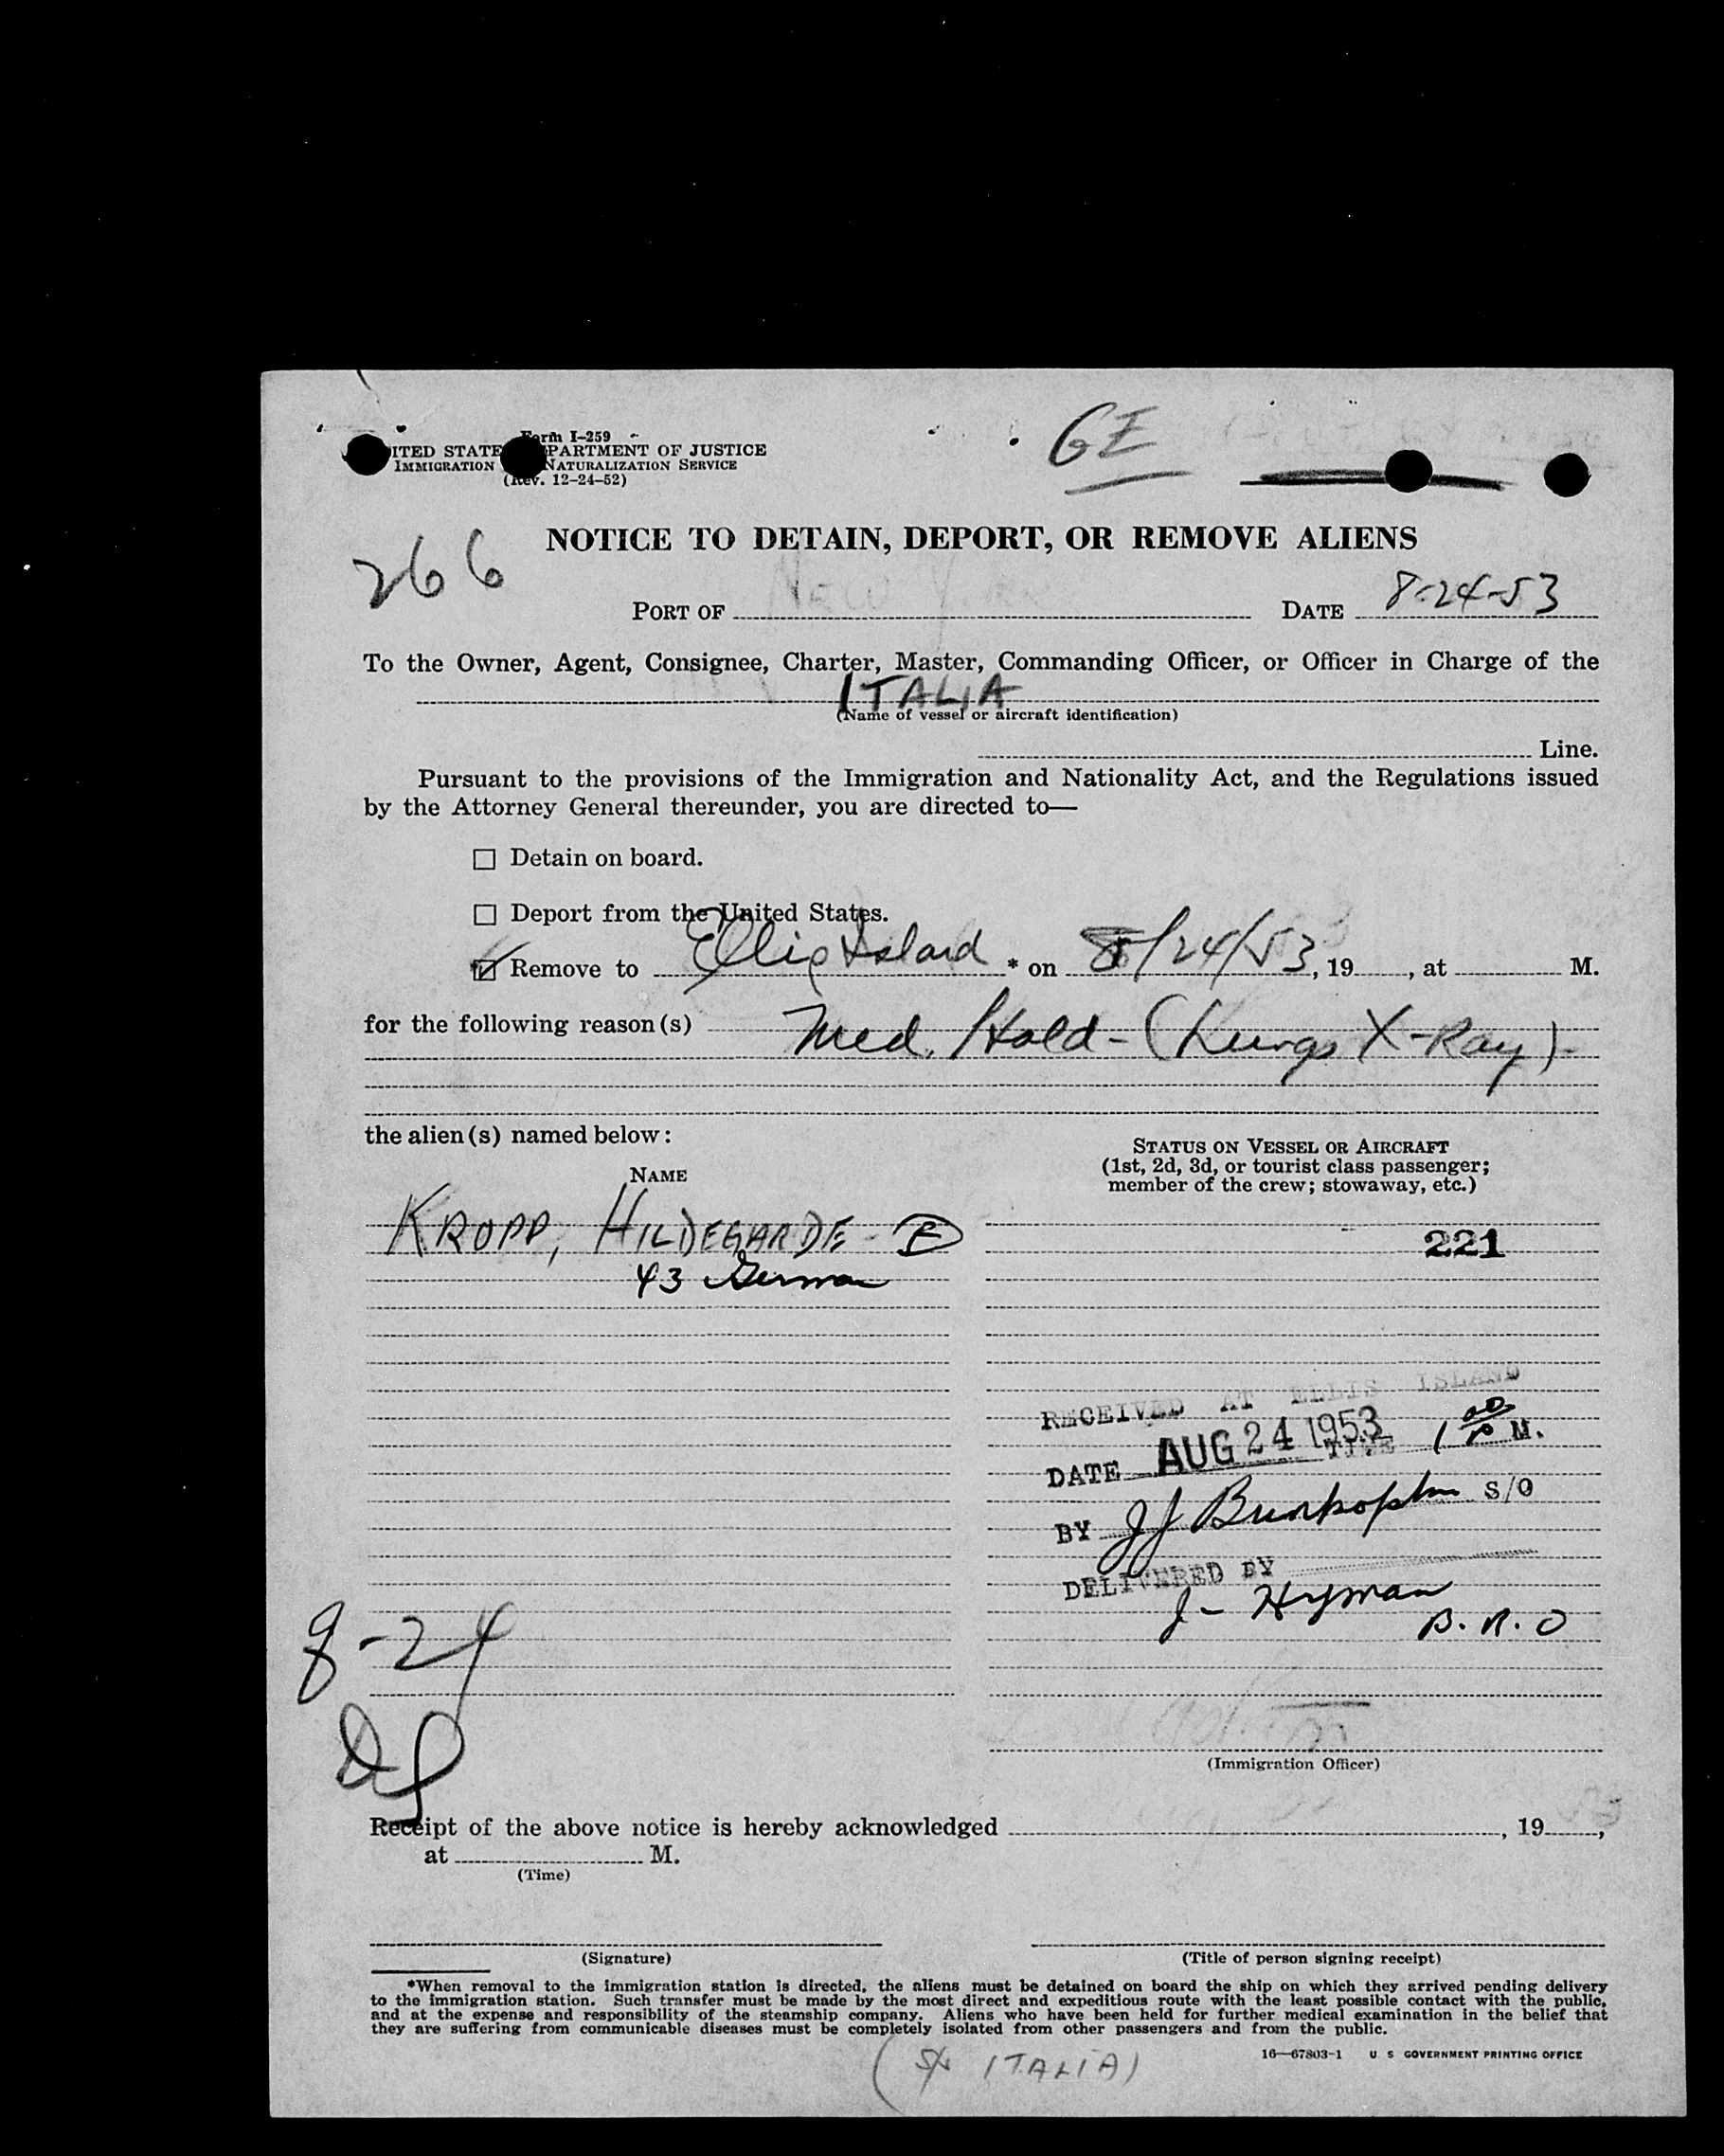 Form I-259
GE
ITED STATE PARTMENT OF JUSTICE
IMMIGRATION NATURALIZATION SERVICE
(Rev. 12-24-52)
NOTICE TO DETAIN, DEPORT, OR REMOVE ALIENS
266
PORT OF New York DATE 8-24-53
To the Owner, Agent, Consignee, Charter, Master, Commanding Officer, or Officer in Charge of the
ITALIA
(Name of vessel or aircraft identification)
Line.
Pursuant to the provisions of the Immigration and Nationality Act, and the Regulations issued
by the Attorney General thereunder, you are directed to—
Detain on board.
Deport from the United States.
Remove to Ellis Island * on 8/24/53, 19, at M.
for the following reason(s) Med. Hold - (Lungs X-Ray)
the alien(s) named below:
STATUS ON VESSEL OR AIRCRAFT
(1st, 2d, 3d, or tourist class passenger;
member of the crew; stowaway, etc.)
NAME
KROPP, HILDEGARDE - F
221
43 German
RECEIVED AT ELLIS ISLAND
DATE AUG 24 1953 TIME 1 00 P M.
BY JJ S/O
DELIVERED BY
J- Hyman
B.R.O
8-24
(Immigration Officer)
Receipt of the above notice is hereby acknowledged , 19 53,
at M.
(Time)
(Signature) (Title of person signing receipt)
*When removal to the immigration station is directed, the aliens must be detained on board the ship on which they arrived pending delivery
to the immigration station. Such transfer must be made by the most direct and expeditious route with the least possible contact with the public,
and at the expense and responsibility of the steamship company. Aliens who have been held for further medical examination in the belief that
they are suffering from communicable diseases must be completely isolated from other passengers and from the public.
16—67803-1 U S GOVERNMENT PRINTING OFFICE
(S/S ITALIA)